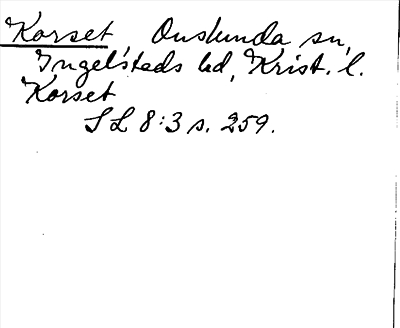 Korset Onslunda sn,
Ingelstads hd, Krist. l.
Korset
SL 8:3 s. 259.